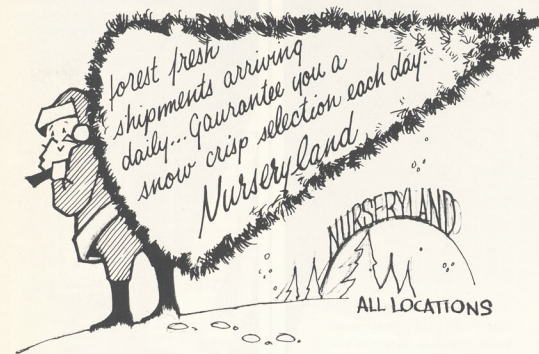 forest fresh
shipments arriving
daily... Gaurantee you a
snow crisp selection each day.
Nurseryland
NURSERYLAND
ALL LOCATIONS